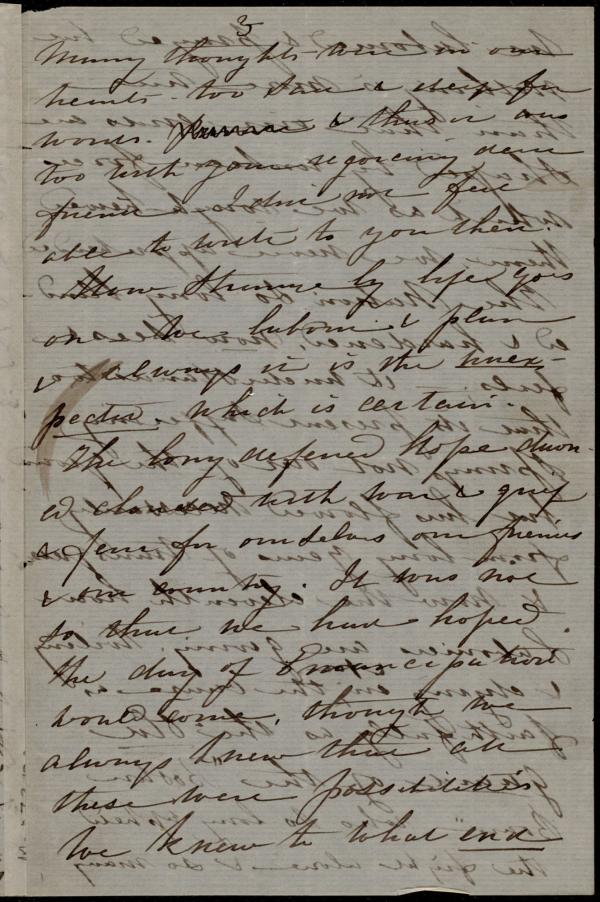 3
Many thoughts were in our
hearts - too sad & deep for
words. & thus it was
too with your rejoicing dear
friend I did not feel
able to write to you then.
How strange by life goes
on. We labour & plan
& always it is the unex-
pected which is certain.
The long deferred hope dawn-
ed clouded with war & grief
& fear for ourselves our friends
& our country. It was not
so that we had hoped
the day of Emancipation
would come, though we
always knew that all
these were possibilities
We knew to what end